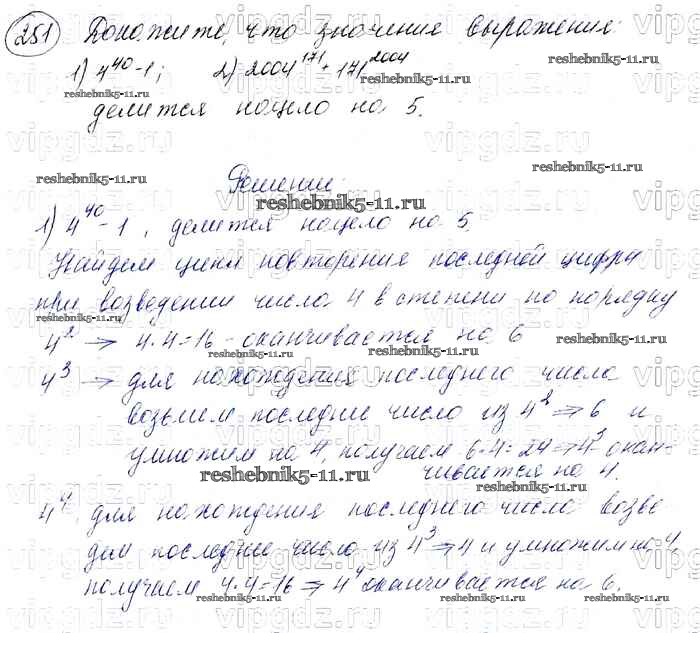 251 Докажите, что значения выражения:
1) 4^40 - 1; 2) 2004^171 + 171^2004
делится нацело на 5.
Решение:
1) 4^40 - 1, делится нацело на 5
Найдем цикл повторения последней цифры
при возведении числа 4 в степени по порядку
4^2 → 4·4=16 - оканчивается на 6
4^3 → для нахождения последнего числа
возьмем последнее число из 4^2 ⇒ 6 и
умножим на 4, получаем 6·4=24 ⇒ 4^3 окан-
чивается на 4.
4^4, для нахождения последнего число возве
дем последнее число из 4^3 ⇒ 4 и умножим на 4
получаем 4·4=16 ⇒ 4^4 оканчивается на 6.
reshebnik5-11.ru
vipgdz.ru